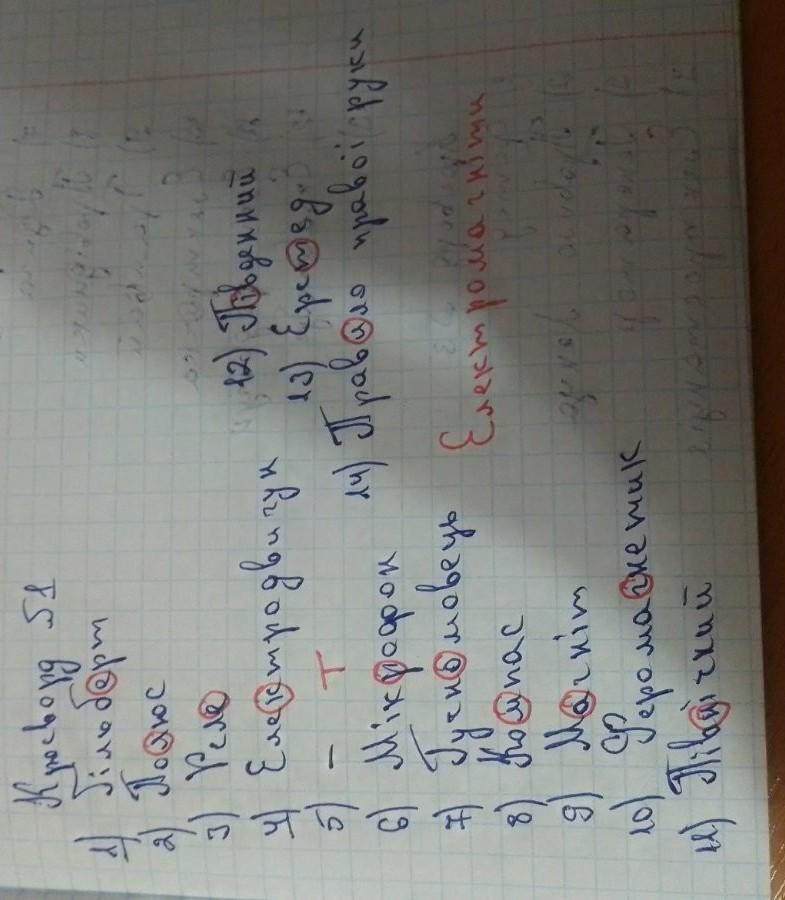 Кросворд №1
1) Гільберт
2) Полюс
3) Реле
4) Електродвигун
5) — Т
6) Мікрофон
7) Гучномовець
8) Компас
9) Магніт
10) Феромагнетик
11) Північний
12) Південний
13) Ерстед
14) Правило правої руки
Електромагніти